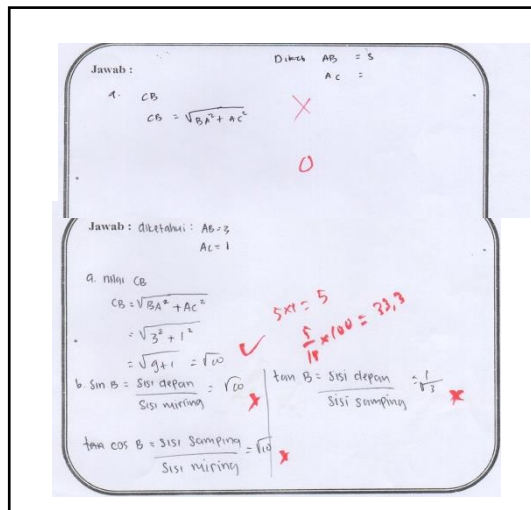 Diket AB = 3
Jawab :
AC =
a. CB
CB = √BA² + AC²
X
0
Jawab : diketahui : AB = 3
AC = 1
a. nilai CB
CB = √BA² + AC²
= √3² + 1²
= √9+1 = √10 ✓
5x1 = 5
5/15 x 100 = 33,3
b. Sin B = Sisi depan / Sisi miring = √10 x
tan B = Sisi depan / Sisi samping = 1/√3 x
cos B = Sisi Samping / Sisi miring = √10 x